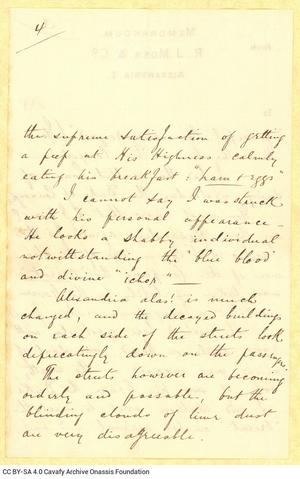 4
MEMORANDUM.
R. J. MOSS & Co
ALEXANDRIA
the supreme satisfaction of getting
a peep at His Highness calmly
eating his breakfast: "ham & eggs"
I cannot say I was struck
with his personal appearance -
He looks a shabby individual
notwithstanding the 'blue blood'
and divine "ichor" —
Alexandria alas! is much
changed, and the decayed buildings
on each side of the streets look
deprecatingly down on the passengers.
The streets however are becoming
orderly and passable, but the
blinding clouds of lime dust
are very disagreeable.
CC BY-SA 4.0 Cavafy Archive Onassis Foundation